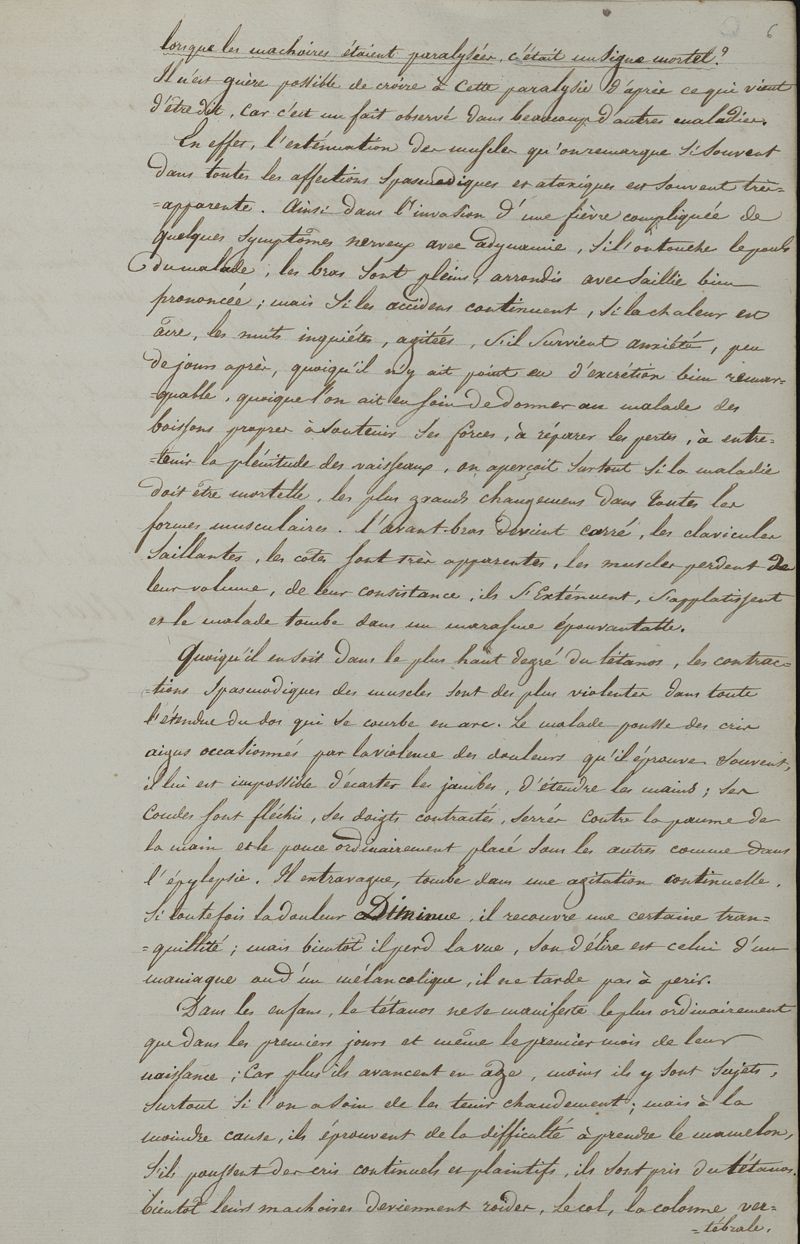 6
lorsque les machoires étaient paralysées, c'était un signe mortel?
Il n'est guère possible de croire à cette paralysie d'après ce qui vient
d'être dit, car c'est un fait observé dans beaucoup d'autres maladies.
En effet, l'exténuation des muscles qu'on remarque si souvent
dans toutes les affections spasmodiques et ataxiques est souvent très-
=apparente. Ainsi dans l'invasion d'une fièvre compliquée de
quelques symptômes nerveux avec adynamie, si l'on touche le pouls
du malade, les bras sont pleins, arrondis avec saillie bien
prononcée; mais si les accidens continuent, si la chaleur est
âcre, les nuits inquiétes, agitées, s'il survient anxiété, peu
de jours après, quoiqu'il n'y ait point eu d'excrétion bien remar=
=quable, quoique l'on ait eu soin de donner au malade des
boissons propres à soutenir ses forces, à réparer les pertes, à entre=
=tenir la plénitude des vaisseaux, on aperçoit surtout si la maladie
doit être mortelle, les plus grands changemens dans toutes les
formes musculaires. l'avant-bras devient carré, les clavicules
saillantes, les côtes sont très apparentes, les muscles perdent de
leur volume, de leur consistance, ils s'exténuent, s'applatissent
et le malade tombe dans un marasme épouvantable.
Quoiqu'il en soit dans le plus haut degré du tétanos, les contrac=
=tions spasmodiques des muscles sont des plus violentes dans toute
l'étendue du dos qui se courbe en arc. Le malade pousse des cris
aigus occasionnés par la violence des douleurs qu'il éprouve souvent,
il lui est impossible d'écarter les jambes, d'étendre les mains; ses
coudes sont fléchis, ses doigts contractés, serrés contre la paume de
la main et le pouce ordinairement placé sous les autres comme dans
l'épylepsie. Il extravague, tombe dans une agitation continuelle.
Si toutefois la douleur Diminue, il recouvre une certaine tran=
=quillité; mais bientôt il perd la vue, son délire est celui d'un
maniaque ou d'un mélancolique, il ne tarde pas à perir.
Dans les enfans, le tétanos ne se manifeste le plus ordinairement
que dans les premiers jours et même le premier mois de leur
naissance; car plus ils avancent en âge, moins ils y sont sujets,
surtout si l'on a soin de les tenir chaudement; mais à la
moindre cause, ils éprouvent de la difficulté à prendre le mamelon,
s'ils poussent des cris continuels et plaintifs, ils sont pris du tétanos.
bientôt leurs machoires deviennent roides, le col, la colonne ver=
=tébrale.